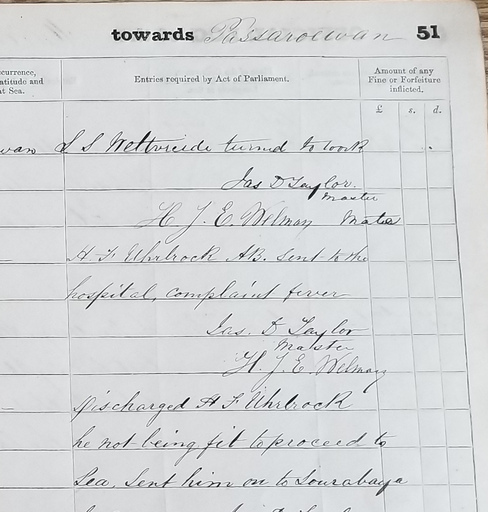 towards Passaroewan 51
currence,
atitude and
at Sea.
Entries required by Act of Parliament.
Amount of any
Fine or Forfeiture
inflicted.
£ s. d.
wan
S S turned to work
Jas D Taylor.
Master
H. J. E. Welman Mate
H. F Uhrbrock AB. Sent to the
hospital, complaint fever
Jas. D Taylor
Master
H. J. E. Welman
Discharged H F Uhrbrock
he not being fit to proceed to
Sea. Sent him on to Sourabaya